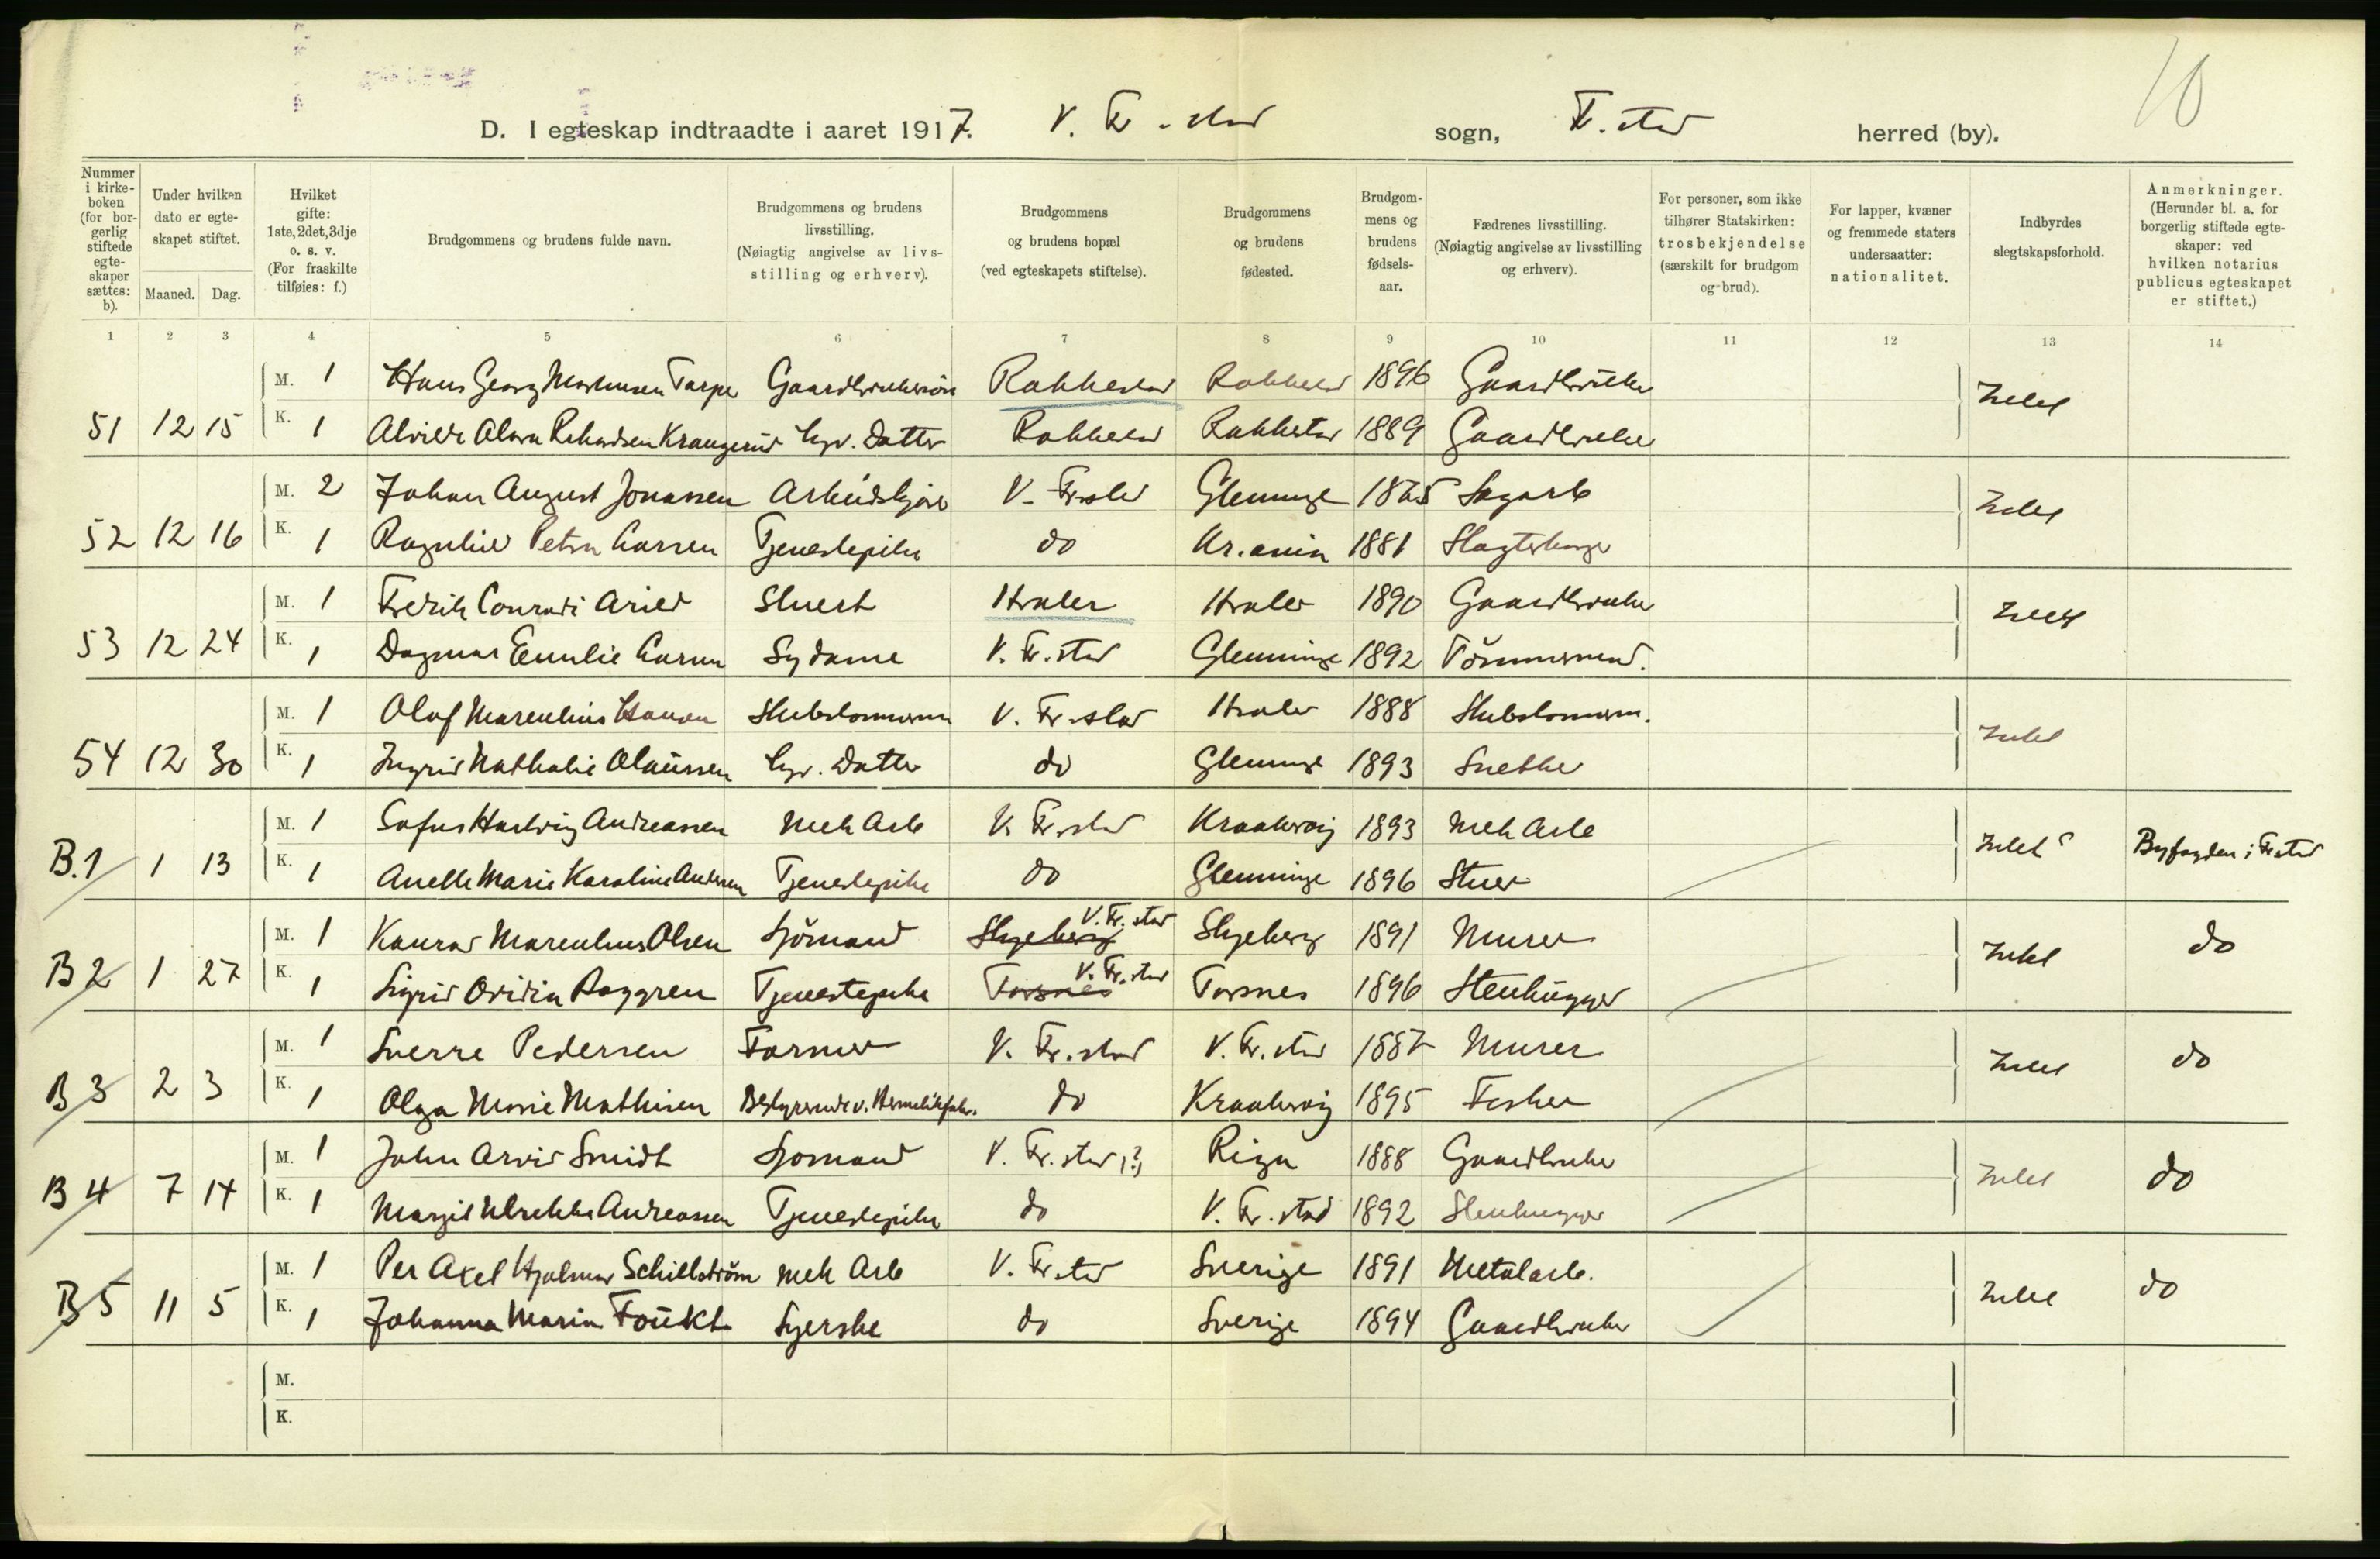 10
D. I egteskap indtraadte i aaret 1917. V. Fr.stad sogn, Fr.stad herred (by).
Nummer i kirke-boken (for bor-gerlig stiftede egte-skaper sættes: b).
Under hvilken dato er egte-skapet stiftet.
Maaned. Dag.
Hvilket gifte: 1ste, 2det, 3dje o. s. v. (For fraskilte tilføies: f.)
Brudgommens og brudens fulde navn.
Brudgommens og brudens livsstilling. (Nøiagtig angivelse av livs-stilling og erhverv).
Brudgommens og brudens bopæl (ved egteskapets stiftelse).
Brudgommens og brudens fødested.
Brudgom-mens og brudens fødsels-aar.
Fædrenes livsstilling. (Nøiagtig angivelse av livsstilling og erhverv).
For personer, som ikke tilhører Statskirken: trosbekjendelse (særskilt for brudgom og brud).
For lapper, kvæner og fremmede staters undersaatter: nationalitet.
Indbyrdes slegtskapsforhold.
Anmerkninger. (Herunder bl. a. for borgerlig stiftede egte-skaper: ved hvilken notarius publicus egteskapet er stiftet.)
1 2 3 4 5 6 7 8 9 10 11 12 13 14
M. 1 Hans Georg Torper Gaardbrukersøn Rakkestad Rakkestad 1896 Gaardbruker
51 12 15 K. 1 Krangerud Datter Rakkestad Rakkestad 1889 Gaardbruker Intet
M. 2 Johan August Jonassen V. Fr.stad Glemminge Sagarb
52 12 16 K. 1 Ragnhild Petra Larsen Tjenestepike do Kr.ania 1881 Intet
M. 1 Fredrik Conradi Arild Stuert Hvaler Hvaler 1890 Gaardbruker
53 12 24 K. 1 Dagmar Emilie Larsen Sydame V. Fr.stad Glemminge 1892 Tömmermand. Intet
M. 1 Olaf Marenlius Hansen V. Fr.stad Hvaler 1888
54 12 30 K. 1 Ingrid Nathalie Olaussen Datter do Glemminge 1893 Snekker Intet
M. 1 Sofus Hartvig Andreassen Mek Arb V. Fr.stad Kraakerøy 1893 Mek Arb
B.1 1 13 K. 1 Anette Marie Karoline Andersen Tjenestepike do Glemminge 1896 Stuer Intet Byfogden i Fr.stad
M. 1 Konrad Marenlius Olsen Sjömand Skjeberg V. Fr.stad Skjeberg 1891 Murer
B 2 1 27 K. 1 Sigrid Ovidia Roggren Tjenestepike Torsnes V. Fr.stad Torsnes 1896 Stenhugger Intet do
M. 1 Sverre Pedersen Former V. Fr.stad V. Fr.stad 1887 Murer
B 3 2 3 K. 1 Olga Marie Mathisen do Kraakerøy 1895 Fisker Intet do
M. 1 John Arvid Smidt Sjomand V. Fr.stad (?) Riga 1888 Gaardbruker
B 4 7 14 K. 1 Margit Ulrikke Andreassen Tjenestepike do V. Fr.stad 1892 Stenhugger Intet do
M. 1 Per Axel Hjalmar Schillström Mek Arb V. Fr.stad Sverige 1891 Metalarb.
B 5 11 5 K. 1 Johanna Maria Foukt Syerske do Sverige 1894 Gaardbruker Intet do
M.
K.